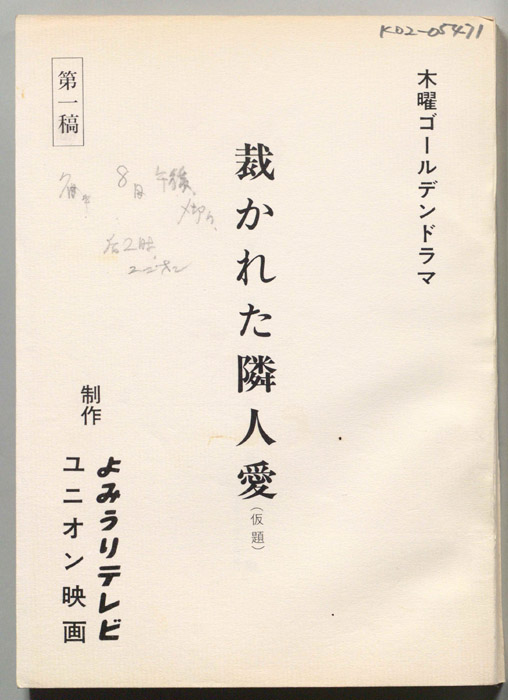 KD2-05471
木曜ゴールデンドラマ
裁かれた隣人愛
(仮題)
第一稿
8日 午後
后2時
ユニオン
制作
よみうりテレビ
ユニオン映画